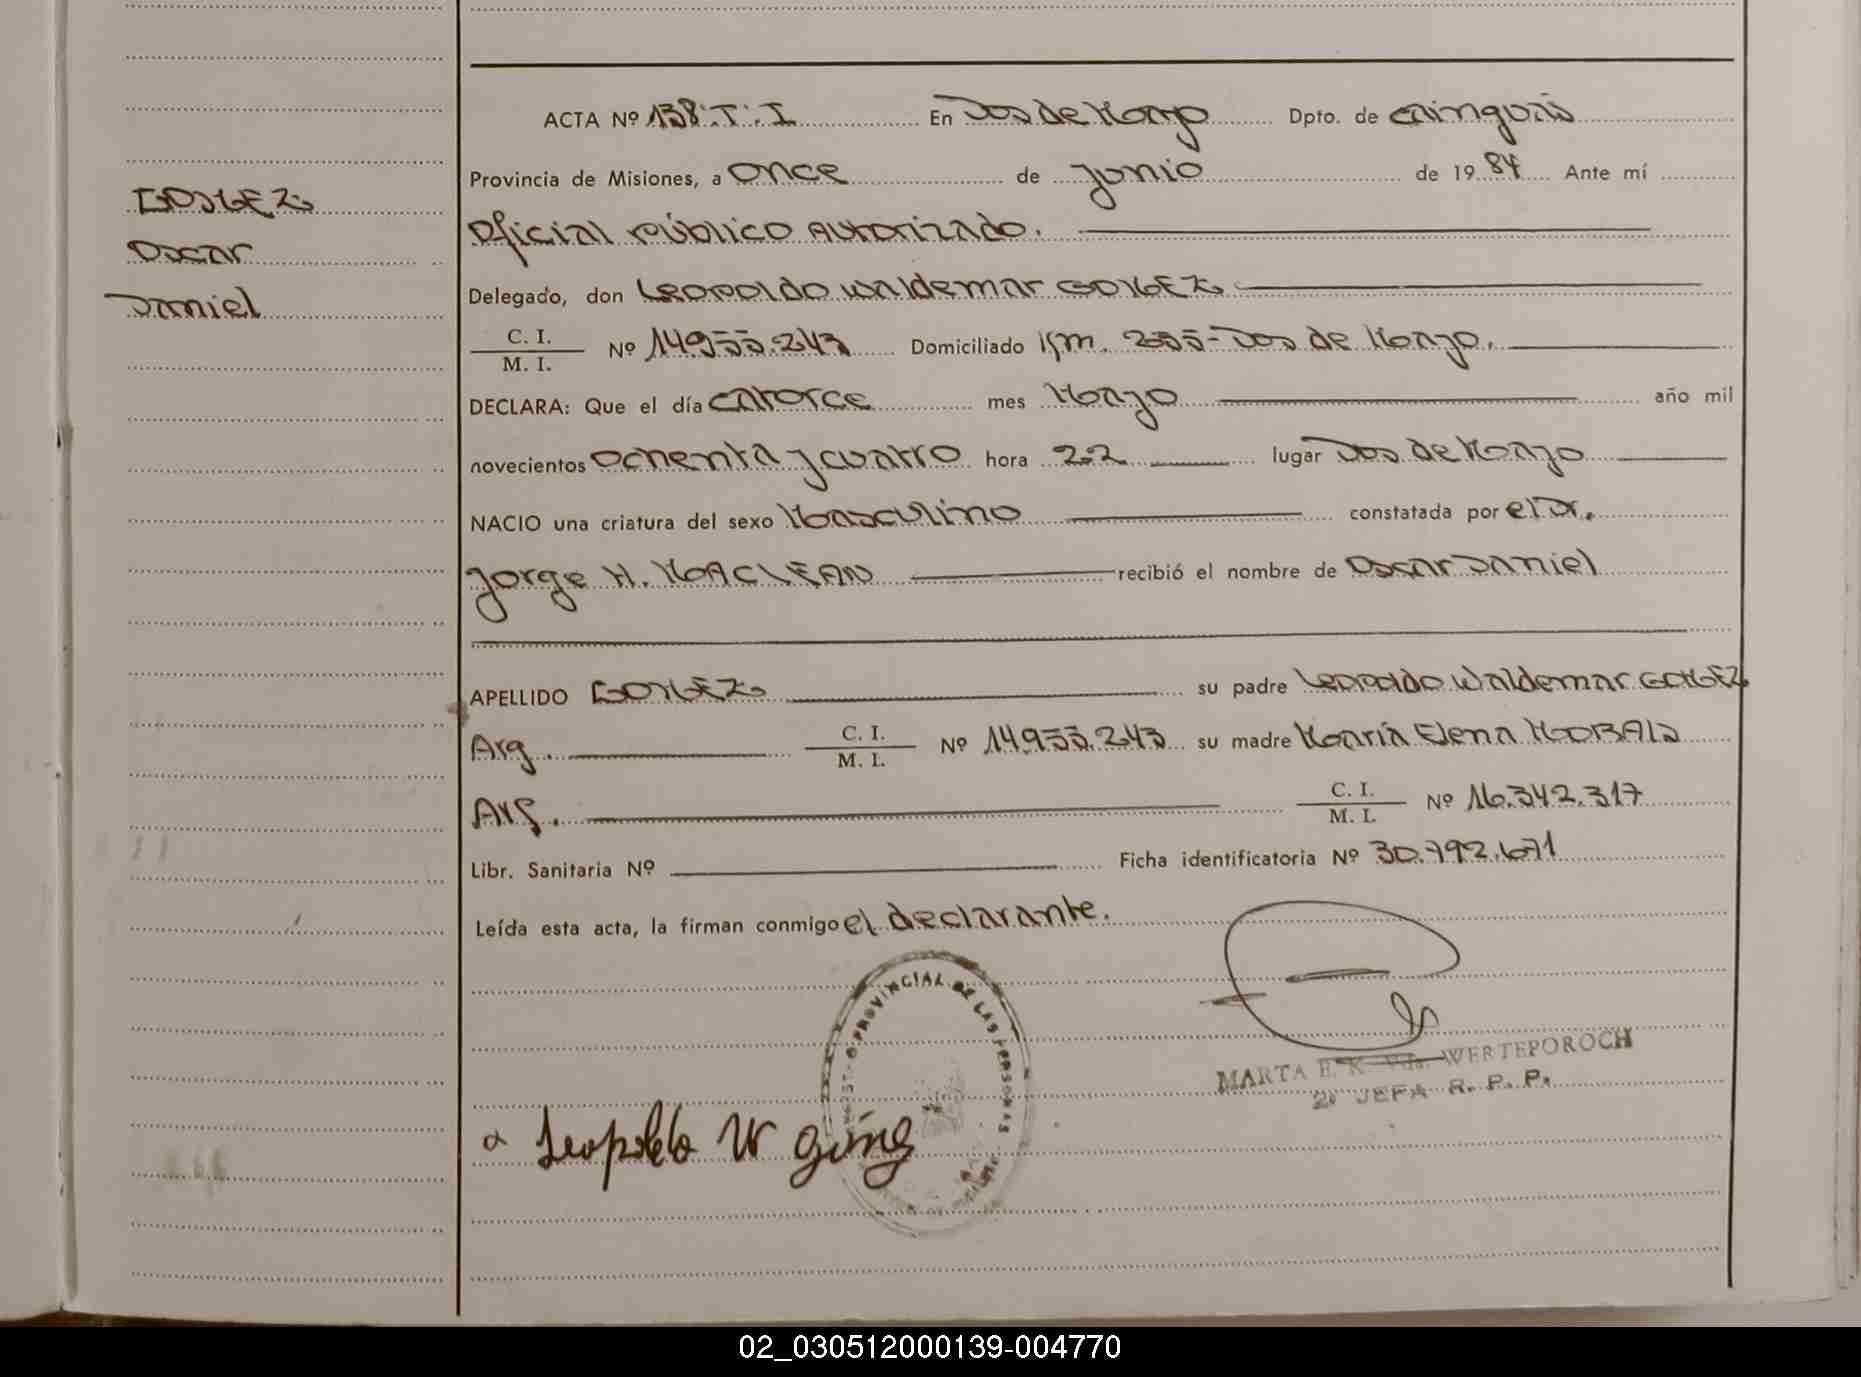 ACTA Nº 138.T.I En Dos de Mayo Dpto. de Cainguás
Provincia de Misiones, a once de junio de 1984 Ante mí
GOMEZ
Oficial público Autorizado.
Oscar
Delegado, don Leopoldo Waldemar GOMEZ
Daniel
C. I.
M. I. Nº 14.955.243 Domiciliado Km. 255-Dos de Mayo.
DECLARA: Que el día catorce mes Mayo año mil
novecientos ochenta y cuatro hora 22 lugar Dos de Mayo
NACIO una criatura del sexo Masculino constatada por el Dr.
Jorge H. MACLEAN recibió el nombre de Oscar Daniel
APELLIDO GOMEZ su padre Leopoldo Waldemar GOMEZ
Arg. C. I.
M. I. Nº 14.955.243 su madre María Elena
Arg. C. I.
M. I. Nº 16.342.317
Libr. Sanitaria Nº Ficha identificatoria Nº 30.792.671
Leída esta acta, la firman conmigo el declarante.
PROVINCIAL DE LAS PERSONAS
MARTA E. K. Vda. WERTEPOROCH
2ª JEFA R. P. P.
Leopoldo W Gómez
02_030512000139-004770